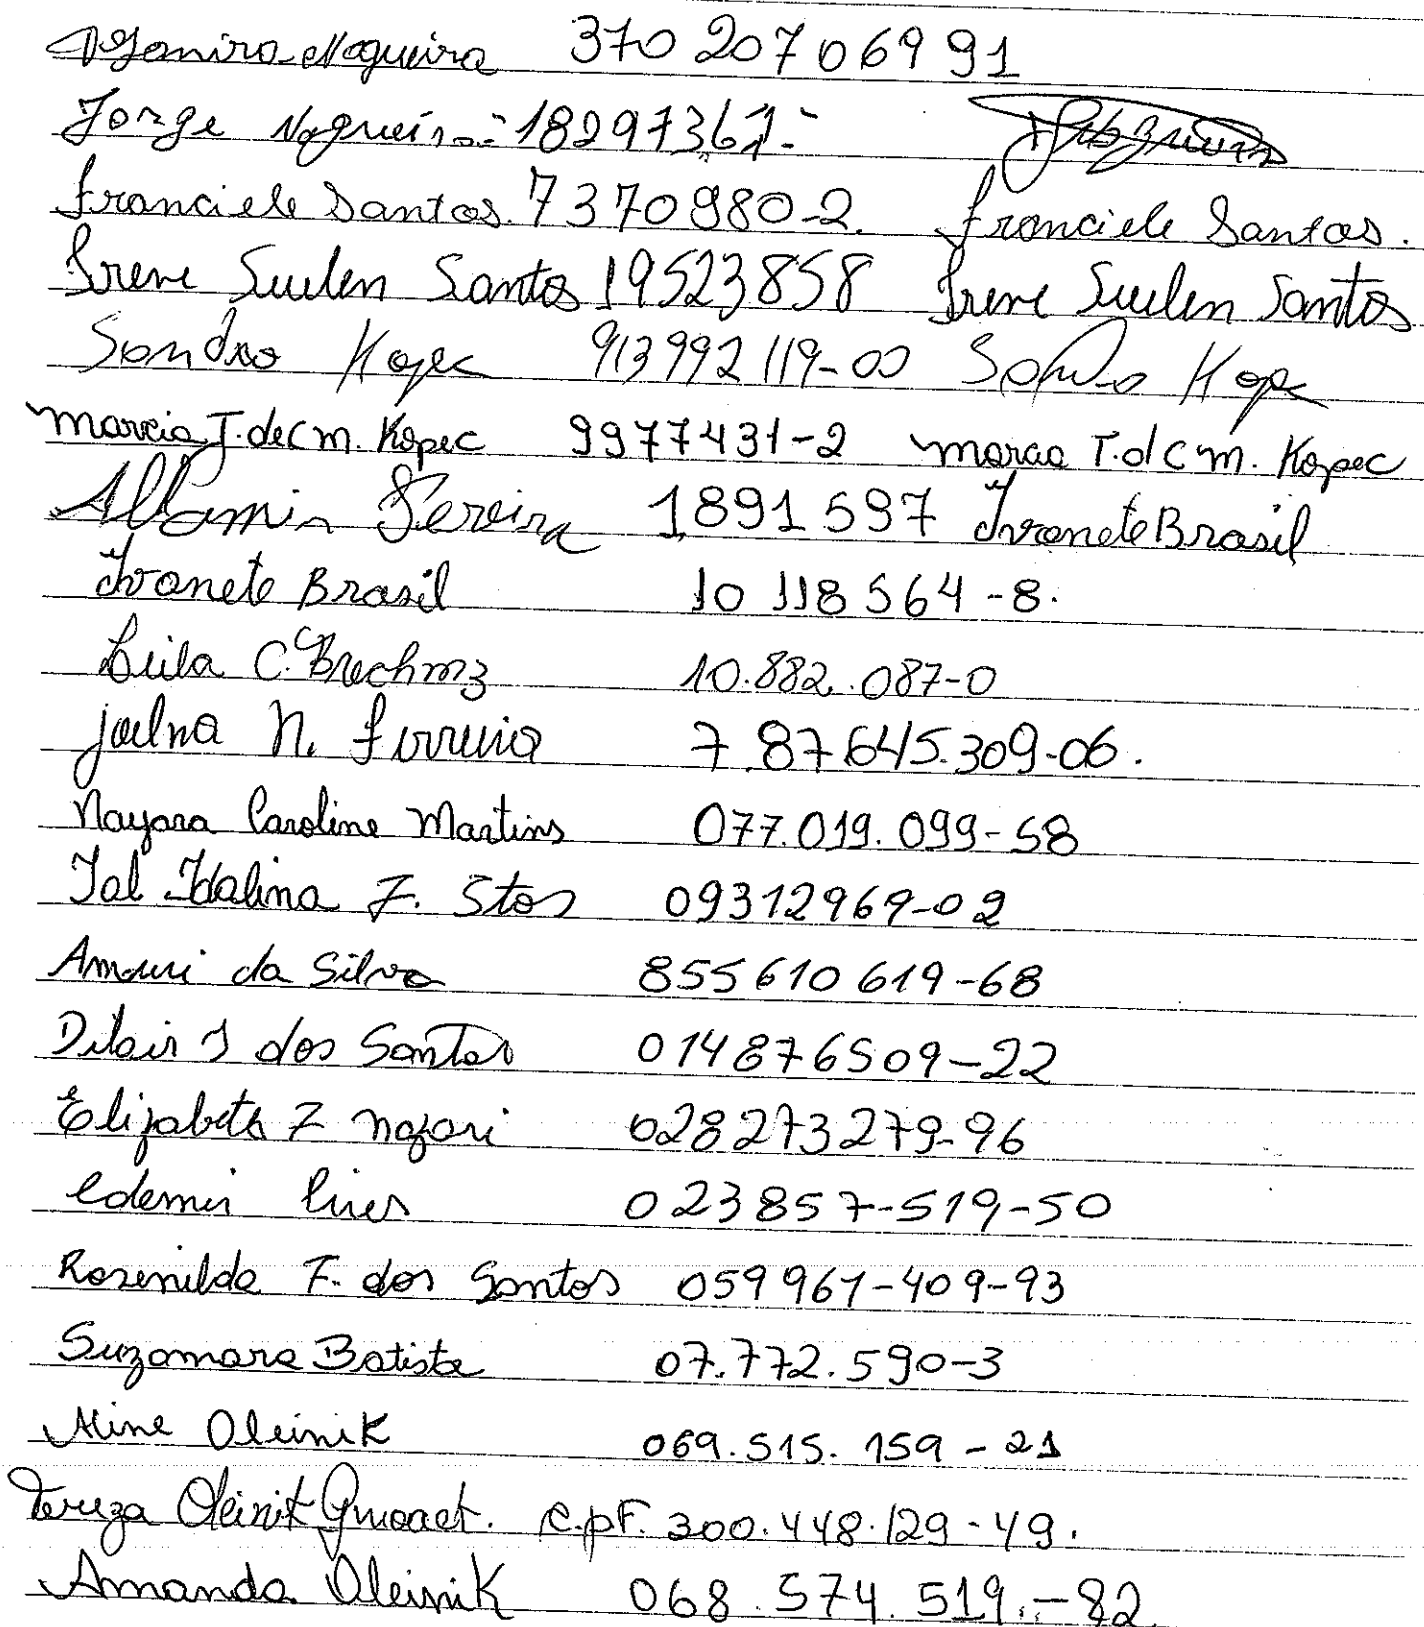 Djanira Nogueira 370 207 069 91
Jorge Nogueira: 18297361-
Franciele Santos. 7370980-2. Franciele Santos.
Irene Suelen Santos 19523858 Irene Suelen Santos
Sandro Kopec 913992119-00 Sandro Kope
Marcia T. de C m. Kopec 9977431-2 marcia T. d C m. Kopec
Altamir Pereira 1891597 Ivanete Brasil
Ivanete Brasil 10 118564-8.
Leila C. 10.882.087-0
Joelna N. Ferreira 787645.309-06.
Nayara Caroline Martins 077.019.099-58
Idalina F. Stos 09312969-02
Amauri da Silva 855610619-68
Dilair J dos Santos 014876509-22
Elizabeth F nazari 028273279-96
Edemir Pires 023857-519-50
Rosenilda F. dos Santos 059961-409-93
Suzamara Batista 07.772.590-3
Aline Oleinik 069.515.159-21
Tereza Oleinik c.pF. 300.448.129-49.
Amanda Oleinik 068.574.519.-82.